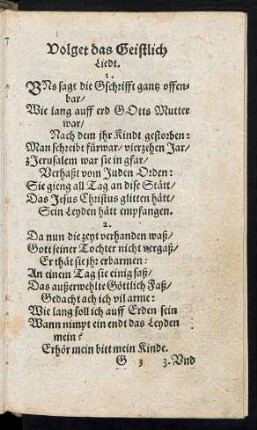 Volget das Geistlich
Liedt.
1.
VNs sagt die Gschrifft gantz offen-
bar/
Wie lang auff erd GOtts Mutter
war/
Nach dem jhr Kindt gestorben:
Man schreibt fürwar/ vierzehen Jar/
zJerusalem war sie in gfar/
Verhaßt vom Juden Orden:
Sie gieng all Tag an dise Stätt/
Das Jesus Christus glitten hätt/
Sein Leyden hätt empfangen.
2.
Da nun die zeyt verhanden waß/
Gott seiner Tochter nicht vergaß/
Er thät sie jhr erbarmen:
An einem Tag sie einig saß/
Das außerwehlte Göttlich Faß/
Gedacht ach ich vil arme:
Wie lang soll ich auff Erden sein
Wann nimpt ein endt das Leyden
mein?
Erhör mein bitt mein Kinde.
G 3 3. Vnd